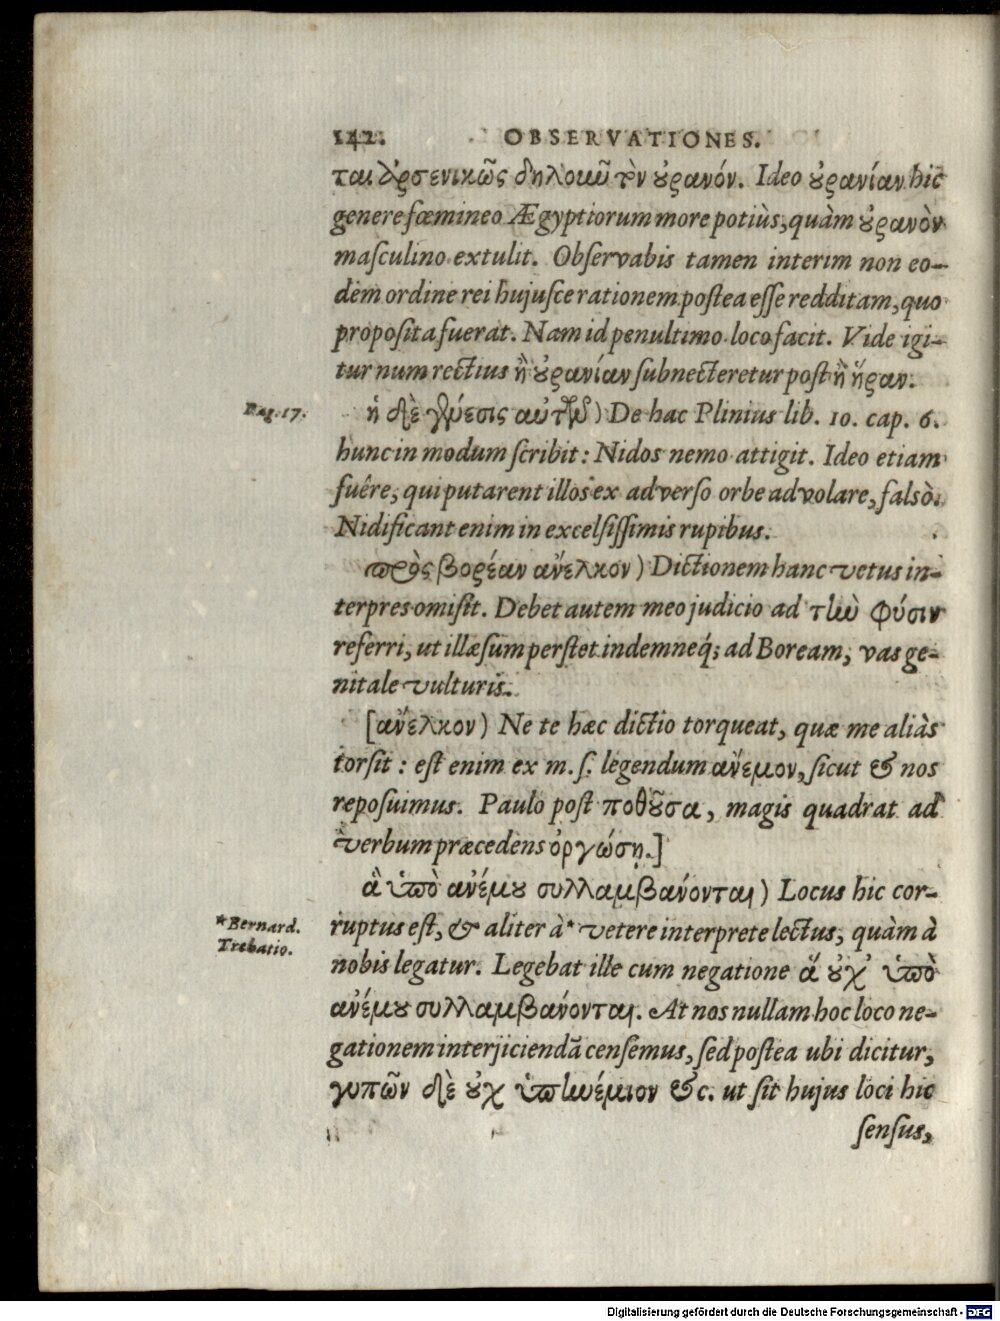 142. OBSERVATIONES.
ται ἀρσενικῶς δηλοῦν τὸν οὐρανόν. Ideo οὐρανίαν hic
genere fœmineo Ægyptiorum more potiùs, quàm οὐρανὸν
masculino extulit. Observabis tamen interim non eo-
dem ordine rei hujusce rationem postea esse redditam, quo
proposita fuerat. Nam id penultimo loco facit. Vide igi-
tur num rectius ἢ οὐρανίαν subnecteretur post ἢ ἥραν.
Pag. 17. ἡ δὲ γένεσις αὐτῶν) De hac Plinius lib. 10. cap. 6.
hunc in modum scribit: Nidos nemo attigit. Ideo etiam
fuêre, qui putarent illos ex adverso orbe advolare, falsò.
Nidificant enim in excelsissimis rupibus.
πρὸς βορέαν ἄνελκον) Dictionem hanc vetus in-
terpres omisit. Debet autem meo judicio ad τὴν φύσιν
referri, ut illæsum perstet indemneq́; ad Boream, vas ge-
nitale vulturis.
[ἄνελκον) Ne te hæc dictio torqueat, quæ me aliàs
torsit: est enim ex m. s. legendum ἄνεμον, sicut & nos
reposuimus. Paulo post ποθοῦσα, magis quadrat ad
verbum præcedens ὀργώσῃ.]
ἃ ὑπὸ ἀνέμου συλλαμβάνονται) Locus hic cor-
ruptus est, & aliter à* vetere interprete lectus, quàm à
*Bernard.
Trebatio.
nobis legatur. Legebat ille cum negatione ἃ οὐχ' ὑπὸ
ἀνέμου συλλαμβάνονται. At nos nullam hoc loco ne-
gationem interjiciendã censemus, sed postea ubi dicitur,
γυπῶν δὲ οὐχ ὑπηνέμιον &c. ut sit hujus loci hic
sensus,
Digitalisierung gefördert durch die Deutsche Forschungsgemeinschaft - DFG